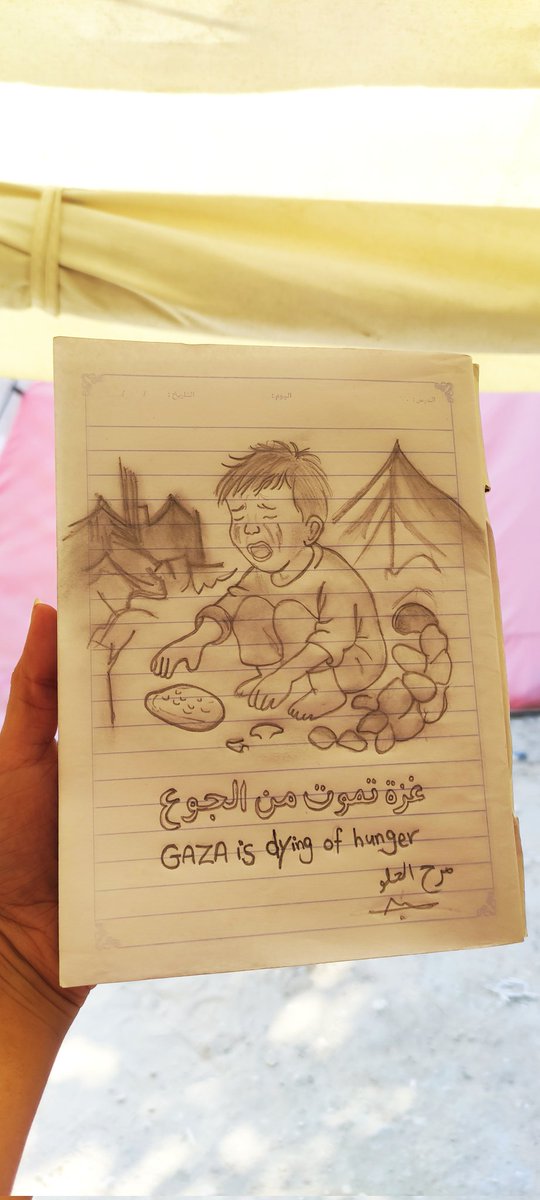 الدرس: اليوم: التاريخ: / /
غزة تموت من الجوع
GAZA is dying of hunger
مرح الحلو